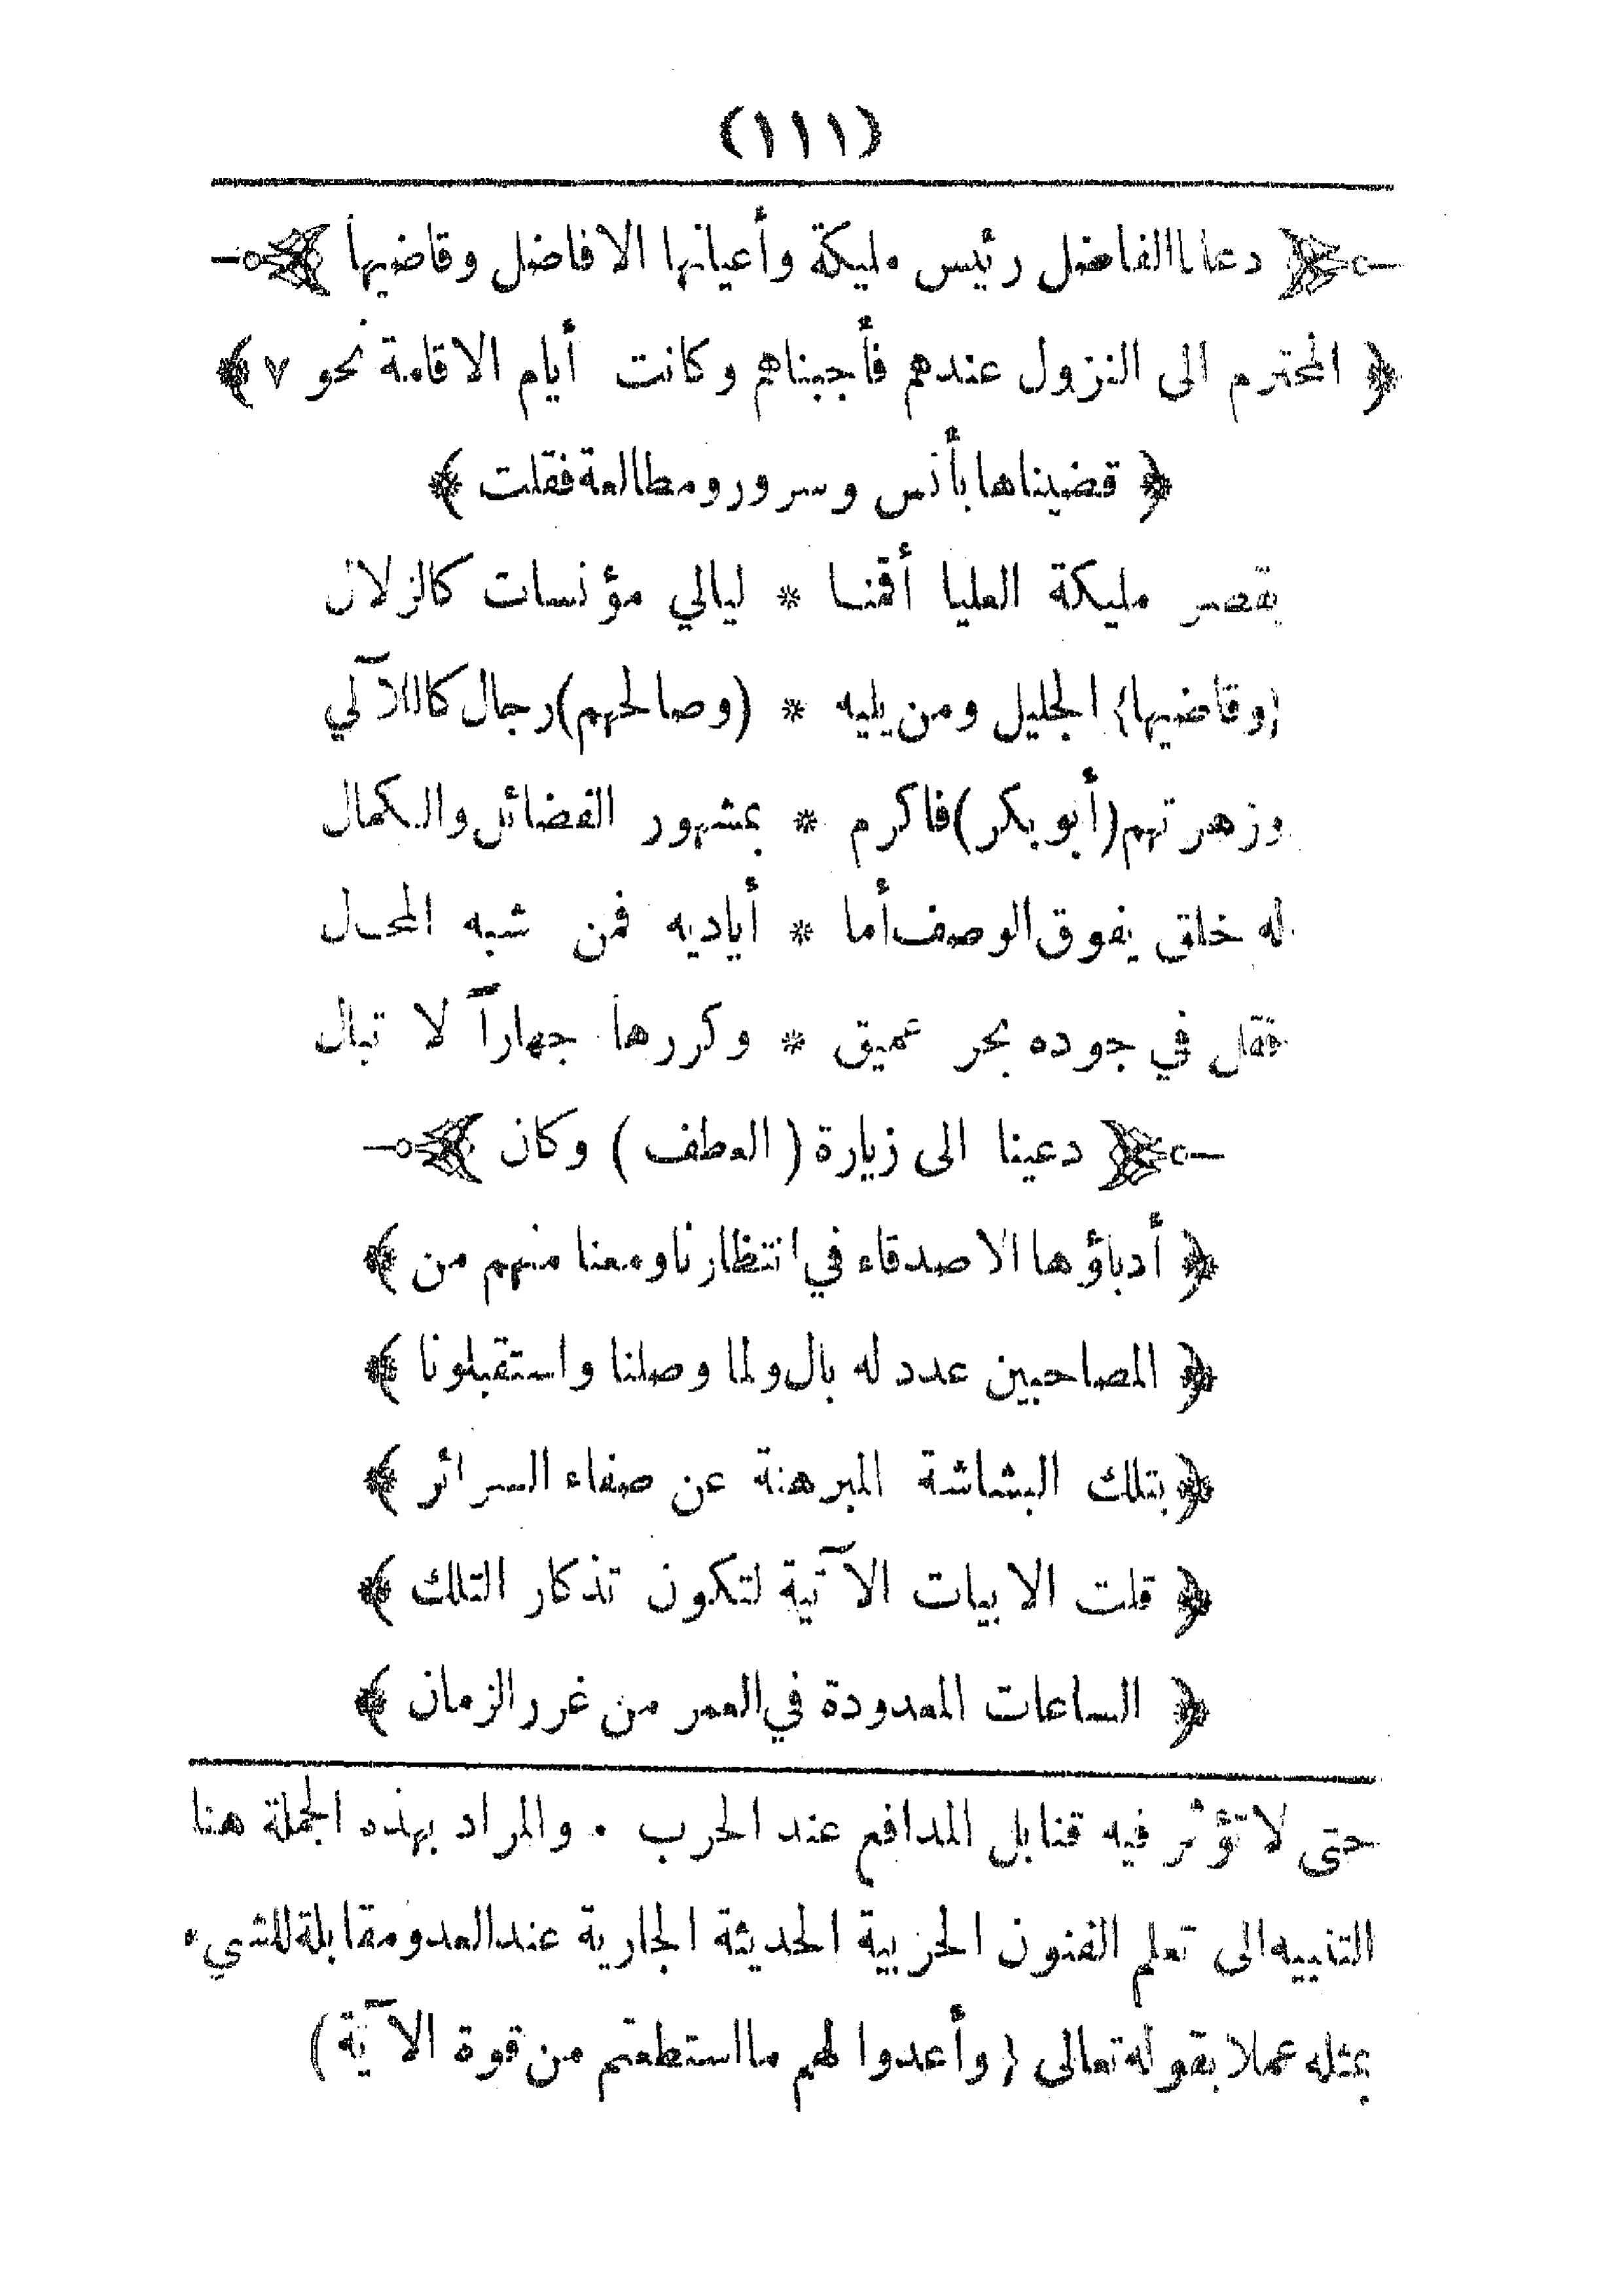 (١١١)
﴿ دعانا الفاضل رئيس مليكة وأعيانها الافاضل وقاضيها ﴾
﴿ المحترم الى النزول عندهم فأجبناهم وكانت أيام الاقامة نحو ٧ ﴾
﴿ قضيناها بأنس وسرور ومطالعة فقلت ﴾
بقصر مليكة العليا أقمنا * ليالي مؤنسات كالزلال
(وقاضيها) الجليل ومن يليه * (وصالحهم) رجال كاللآلي
وزهرتهم (أبو بكر) فاكرم * بمشهور الفضائل والكمال
له خلق يفوق الوصف أما * أياديه فمن شبه المحال
فقل في جوده بحر عميق * وكررها جهاراً لا تبال
﴿ دعينا الى زيارة ( العطف ) وكان ﴾
﴿ أدباؤها الاصدقاء في انتظارنا ومعنا منهم من ﴾
﴿ المصاحبين عدد له بال ولما وصلنا واستقبلونا ﴾
﴿ بتلك البشاشة المبرهنة عن صفاء السرائر ﴾
﴿ قلت الابيات الآتية لتكون تذكار التلك ﴾
﴿ الساعات المعدودة في العمر من غرر الزمان ﴾
حتى لا تؤثر فيه قنابل المدافع عند الحرب . والمراد بهذه الجملة هنا
التنبيه الى تعلم الفنون الحربية الحديثة الجارية عند العدو مقابلة للشيء
بمثله عملا بقوله تعالى (وأعدوا لهم ما استطعتم من قوة الآية)